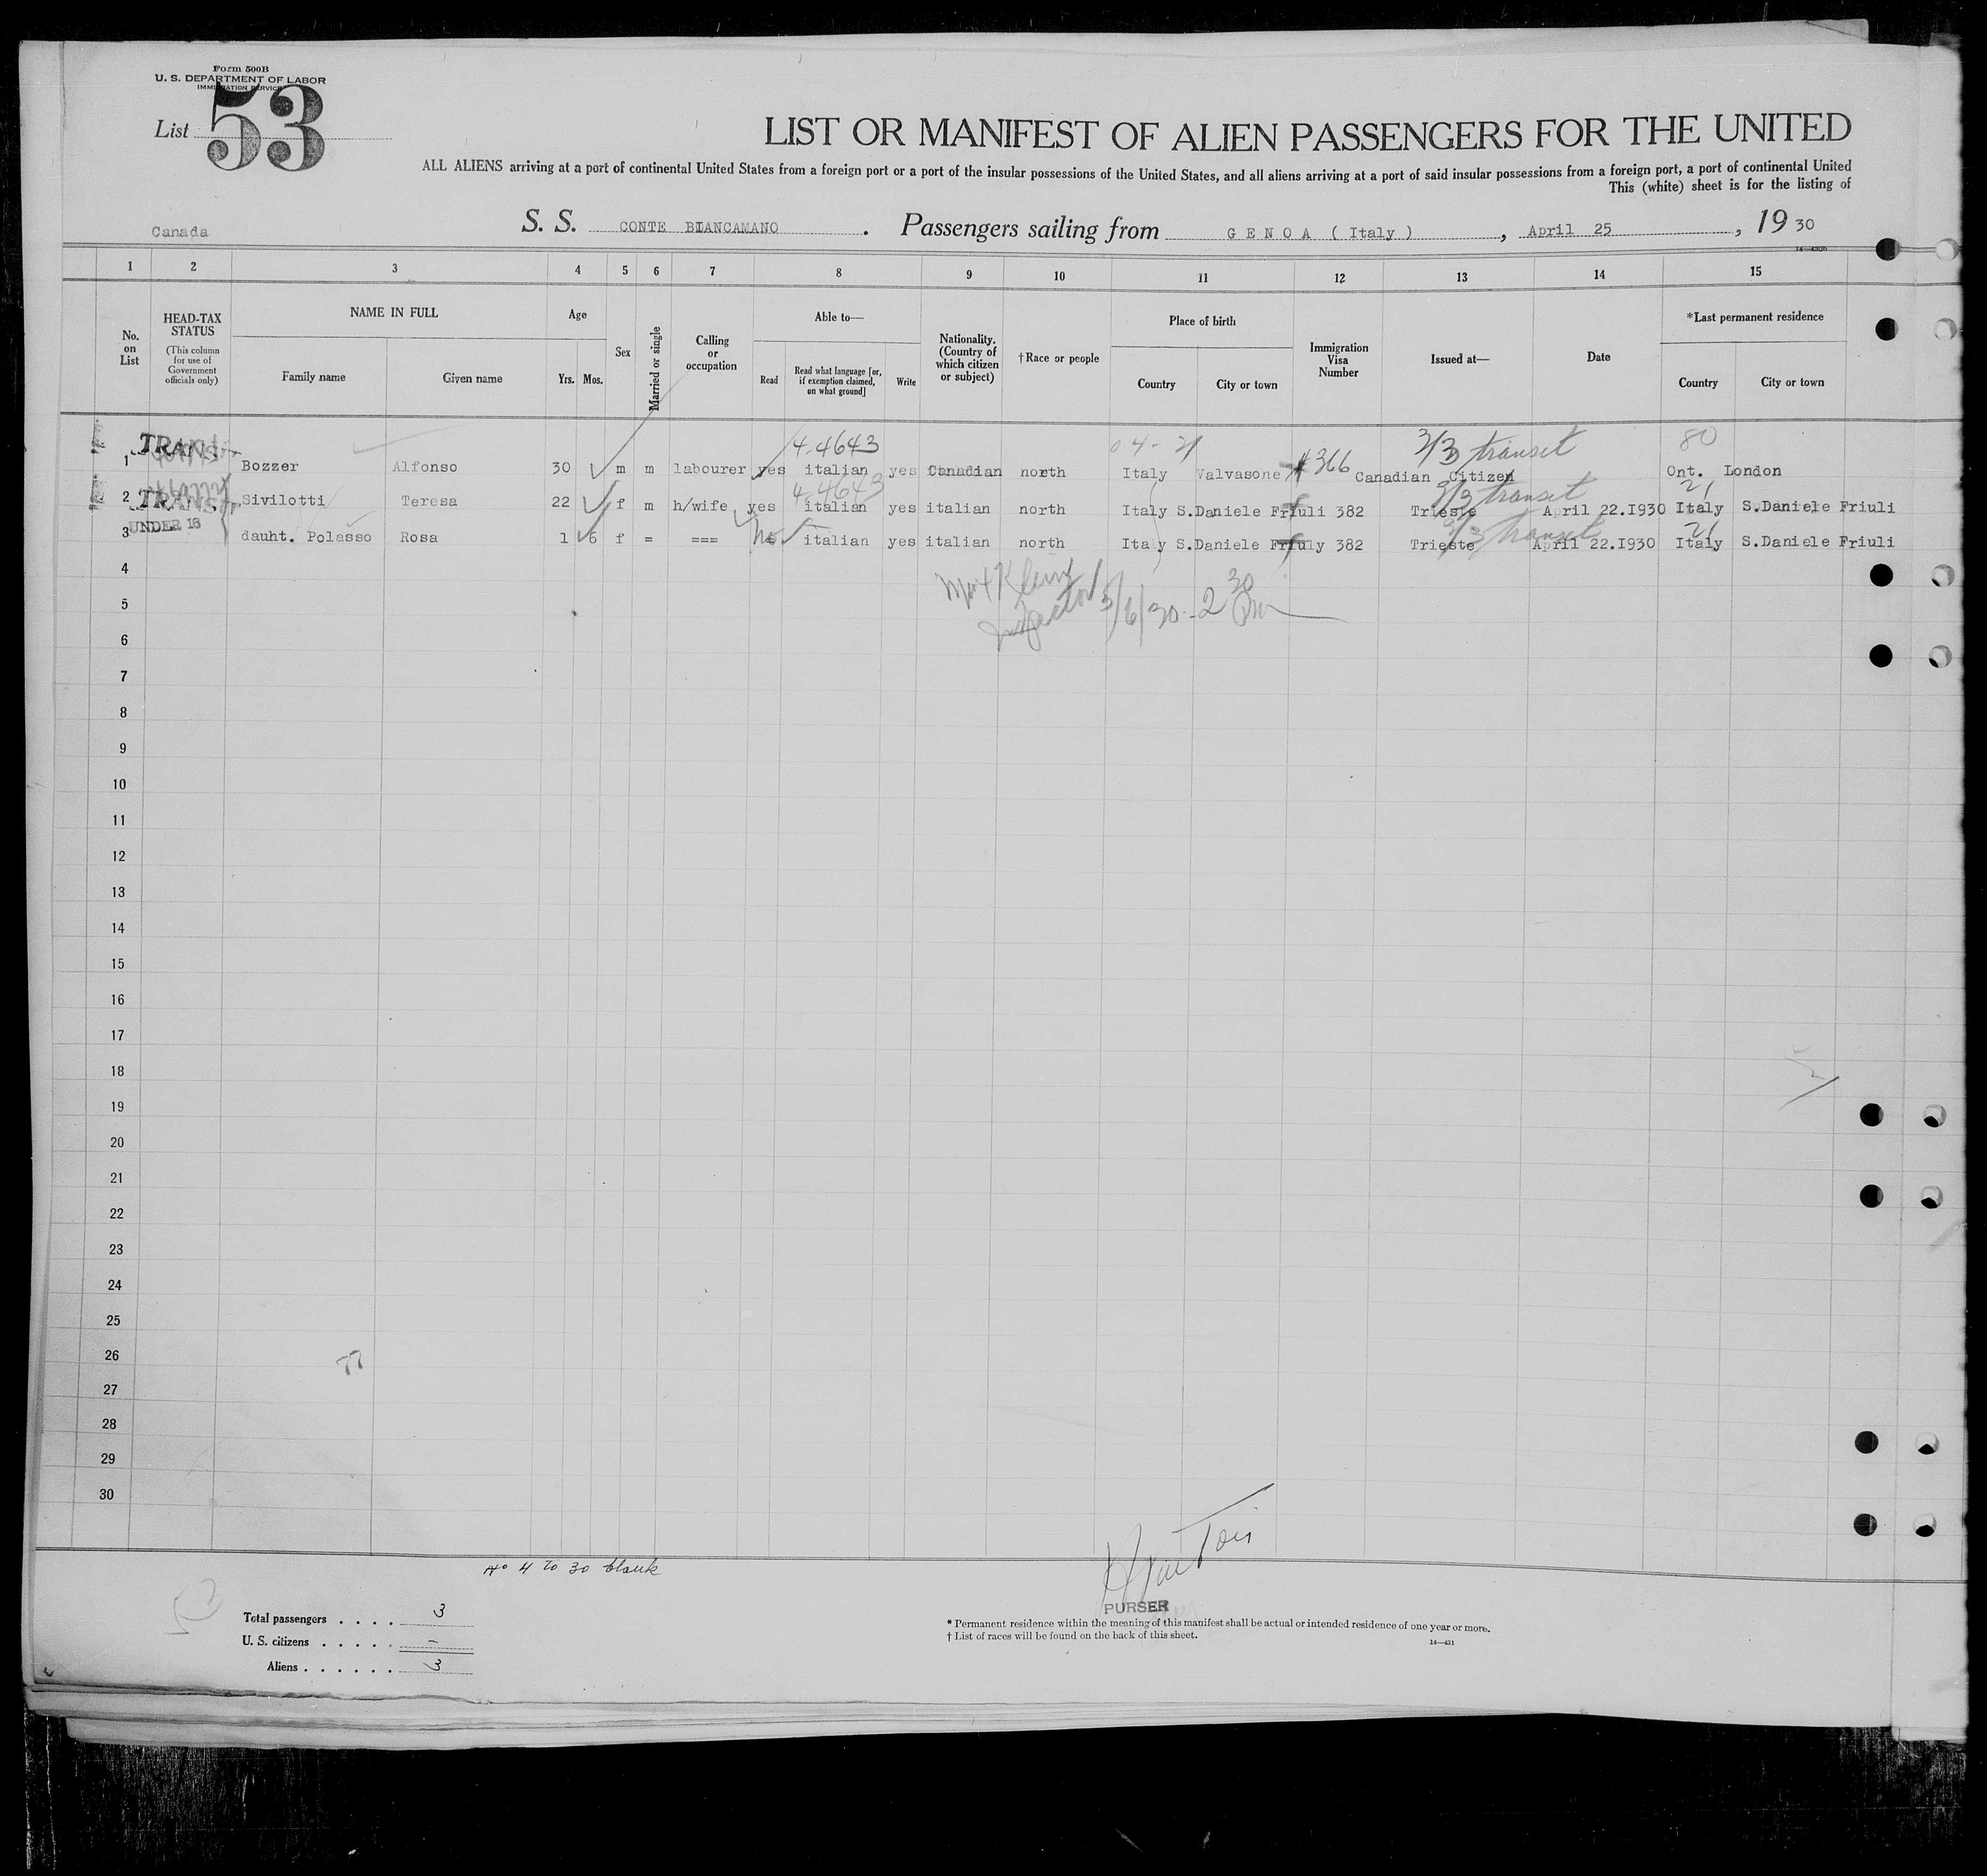 Form 500B
U. S. DEPARTMENT OF LABOR
IMMIGRATION SERVICE
List 53
LIST OR MANIFEST OF ALIEN PASSENGERS FOR THE UNITED
ALL ALIENS arriving at a port of continental United States from a foreign port or a port of the insular possessions of the United States, and all aliens arriving at a port of said insular possessions from a foreign port, a port of continental United
This (white) sheet is for the listing of
Canada
S. S. CONTE BIANCAMANO . Passengers sailing from G E N O A ( Italy ) , April 25 , 19 30
1 2 3 4 5 6 7 8 9 10 11 12 13 14 15
No. on List
HEAD-TAX STATUS (This column for use of Government officials only)
NAME IN FULL
Family name
Given name
Age
Yrs. Mos.
Sex
Married or single
Calling or occupation
Able to—
Read
Read what language [or, if exemption claimed, on what ground]
Write
Nationality. (Country of which citizen or subject)
†Race or people
Place of birth
Country
City or town
Immigration Visa Number
Issued at—
Date
*Last permanent residence
Country
City or town
TRANS. 4-4643 04-21 3/3 transit 80
1 Bozzer Alfonso 30 m m labourer yes italian yes Canadian north Italy Valvasone #366 Canadian Citizen Ont. London
4-4643 3/3 transit 21
2 TRANS. Sivilotti Teresa 22 f m h/wife yes italian yes italian north Italy S.Daniele Friuli 382 Trieste April 22.I930 Italy S.Daniele Friuli
UNDER 16 3/3 transit 21
3 dauht. Polasso Rosa 1 6 f = === no italian yes italian north Italy S.Daniele Friuly 382 Trieste April 22.I930 Italy S.Daniele Friuli
4
Inspector 5/6/30 - 2 30 Pm
5
6
7
8
9
10
11
12
13
14
15
16
17
18
19
20
21
22
23
24
25
26
77
27
28
29
30
No 4 to 30 blank
PURSER
Total passengers . . . . 3
U. S. citizens . . . . . –
Aliens . . . . . . 3
* Permanent residence within the meaning of this manifest shall be actual or intended residence of one year or more.
† List of races will be found on the back of this sheet.
14—431